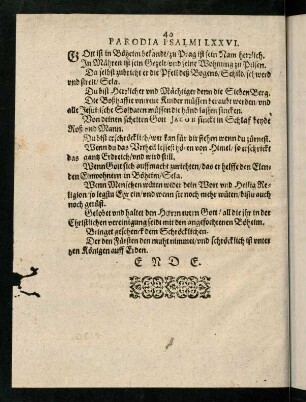 40
PARODIA PSALMI LXXVI.
GOtt ist in Böhem bekandt/ zu Prag ist sein Nam herrlich.
In Mähren ist sein Gezelt/ vnd seine Wohnung zu Pilsen.
Da selbst zubricht er die Pfeil deß Bogens/ Schild/ schwerd
vnd streit/ Sela.
Du bist Herrlicher vnd Mächtiger denn die Sieben Berg.
Die Boßhafftte vnruue Kinder müssen beraubt werden/ vnd
alle Jesuitische Soldaten müssen die händ lassen sincken.
Von deinen schelten Gott JACOB sinckt in Schlaff beyde
Roß vnd Mann.
Du bist erschröcklich/ wer kan für dir stehen wenn du zürnest.
Wenn du das Vrtheil lessest hören vom Himel/ so erschrickt
das gantz Erdreich/ vnd wird still.
Wenn Gott sich auffmacht zurichten/ das er helffe den Elen-
den Einwohnern in Böhem/ Sela.
Wenn Menschen wüten wider dein Wort vnd Heilig Re-
ligion/ so legstu Ehr ein/ vnd wenn sie noch mehr wüten/ bistu auch
noch gerüst.
Gelobet vnd haltet den Herrn ewrn Gott/ all die ihr in der
Christlichen vereinigung seidt mit den angefochtenen Böhem.
Bringet geschenck dem Schröcklichen.
Der den Fürsten den muht nimmet/ vnd schröcklich ist vnter
den Königen auff Erden.
ENDE.